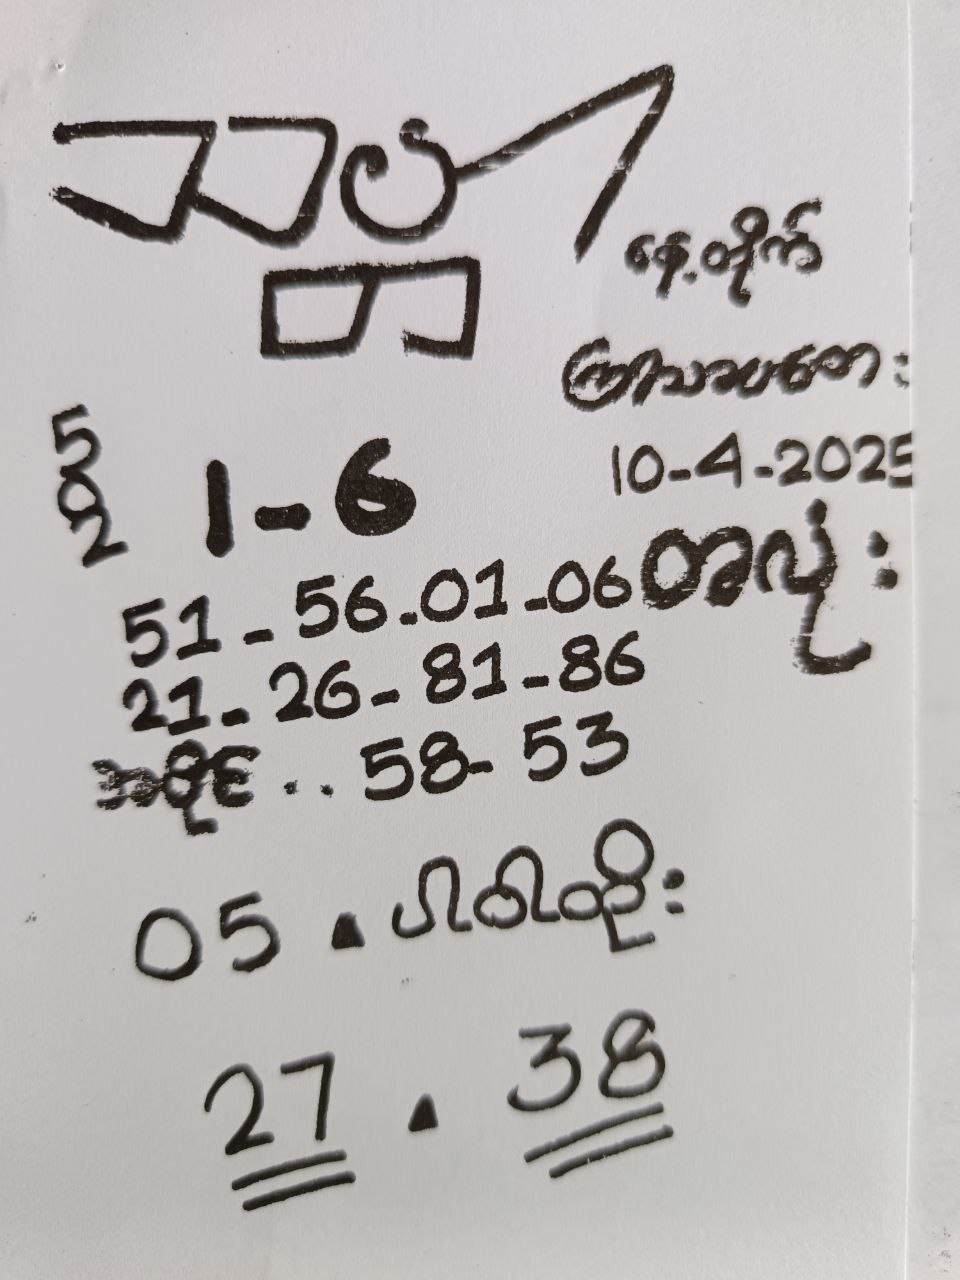 နေ့တိုက်
ကြာသပတေး
10-4-2025
5
0
2
1-6
တလုံး
51-56.01-06
21-26-81-86
အပိုင်..58-53
05.ပါဝါထိုး
27.38